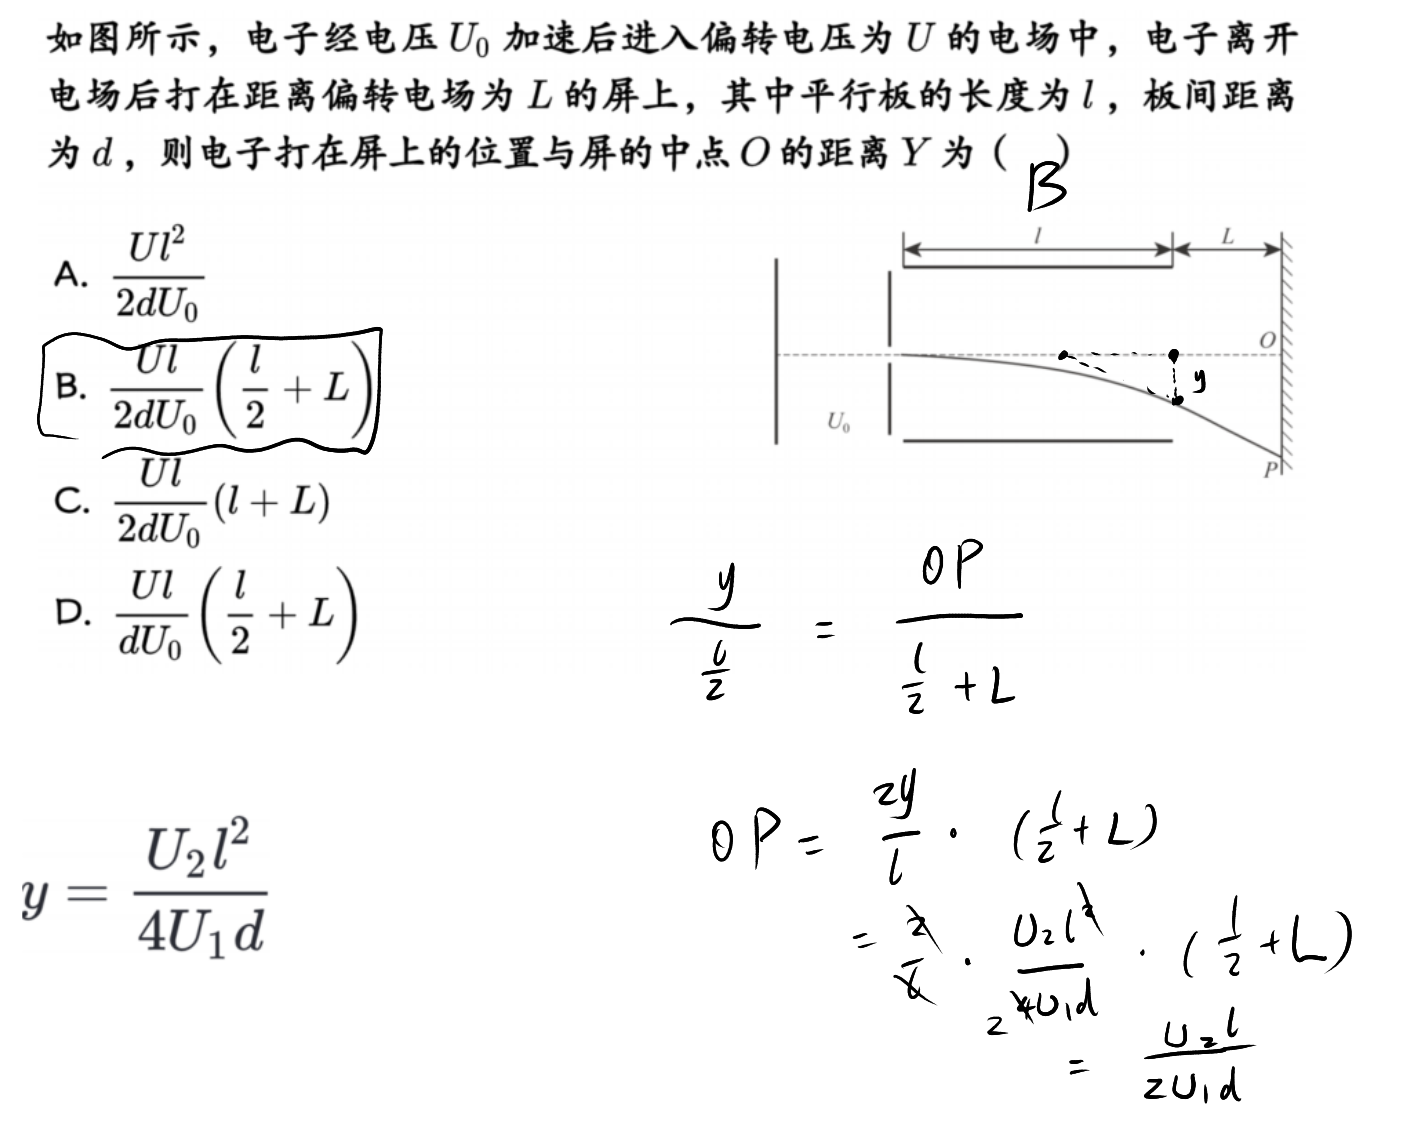 如图所示，电子经电压 U₀ 加速后进入偏转电压为 U 的电场中，电子离开
电场后打在距离偏转电场为 L 的屏上，其中平行板的长度为 l ，板间距离
为 d ，则电子打在屏上的位置与屏的中点 O 的距离 Y 为 (　)
B
A. \frac{Ul^2}{2dU_0}
B. \frac{Ul}{2dU_0}\left(\frac{l}{2}+L\right)
C. \frac{Ul}{2dU_0}(l+L)
D. \frac{Ul}{dU_0}\left(\frac{l}{2}+L\right)
l
L
O
y
U₀
P
\frac{y}{\frac{l}{2}} = \frac{OP}{\frac{l}{2}+L}
y = \frac{U_2l^2}{4U_1d}
OP = \frac{2y}{l} · (\frac{l}{2}+L)
= \frac{2}{l} · \frac{U_2l^2}{4U_1d} · (\frac{l}{2}+L)
2
= \frac{U_2l}{2U_1d}